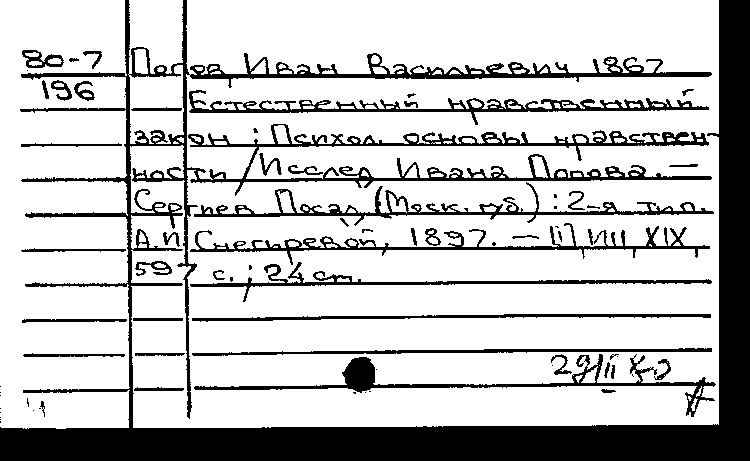 80-7 Попов, Иван Васильевич, 1867
196 Естественный нравственный
закон : Психол. основы нравствен-
ности / Исслед. Ивана Попова. —
Сергиев Посад (Моск. губ.) : 2-я тип.
А.И. Снегиревой, 1897. — [1], III, XIX,
597 с. ; 24 cm.
29/II 80